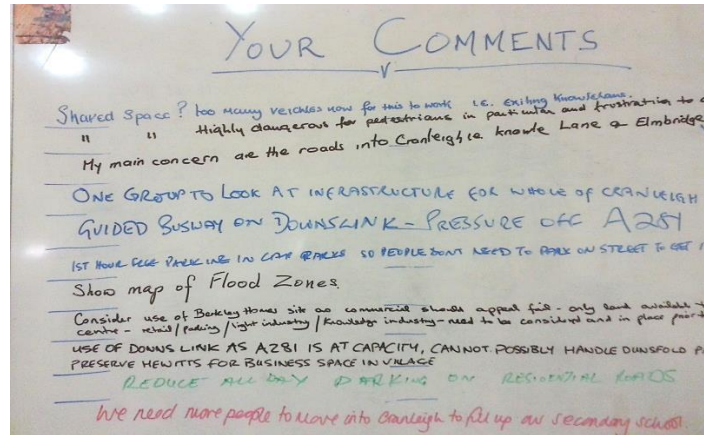 YOUR COMMENTS
Shared Space? too many veichles now for this to work I.E. Exiting Knowle Lane.
" " Highly dangerous for pedestrians in particular and frustration to
My main concern are the roads into Cranleigh ie. Knowle Lane & Elmbridge
ONE GROUP TO LOOK AT INFRASTRUCTURE FOR WHOLE OF CRANLEIGH
GUIDED BUSWAY ON DOWNSLINK - PRESSURE OFF A281
1ST HOUR FREE PARKING IN CAR PARKS SO PEOPLE DONT NEED TO PARK ON STREET TO GET
Show map of Flood Zones.
Consider use of Berkley Homes site as commercial should appeal fail - only land available
centre - retail/parking/light industry/knowledge industry - need to be considered and in place prior
USE OF DOWNS LINK AS A281 IS AT CAPACITY, CANNOT POSSIBLY HANDLE DUNSFOLD
PRESERVE HEWITTS FOR BUSINESS SPACE IN VILLAGE
REDUCE ALL DAY PARKING ON RESIDENTIAL ROADS
We need more people to move into Cranleigh to fill up our secondary school.